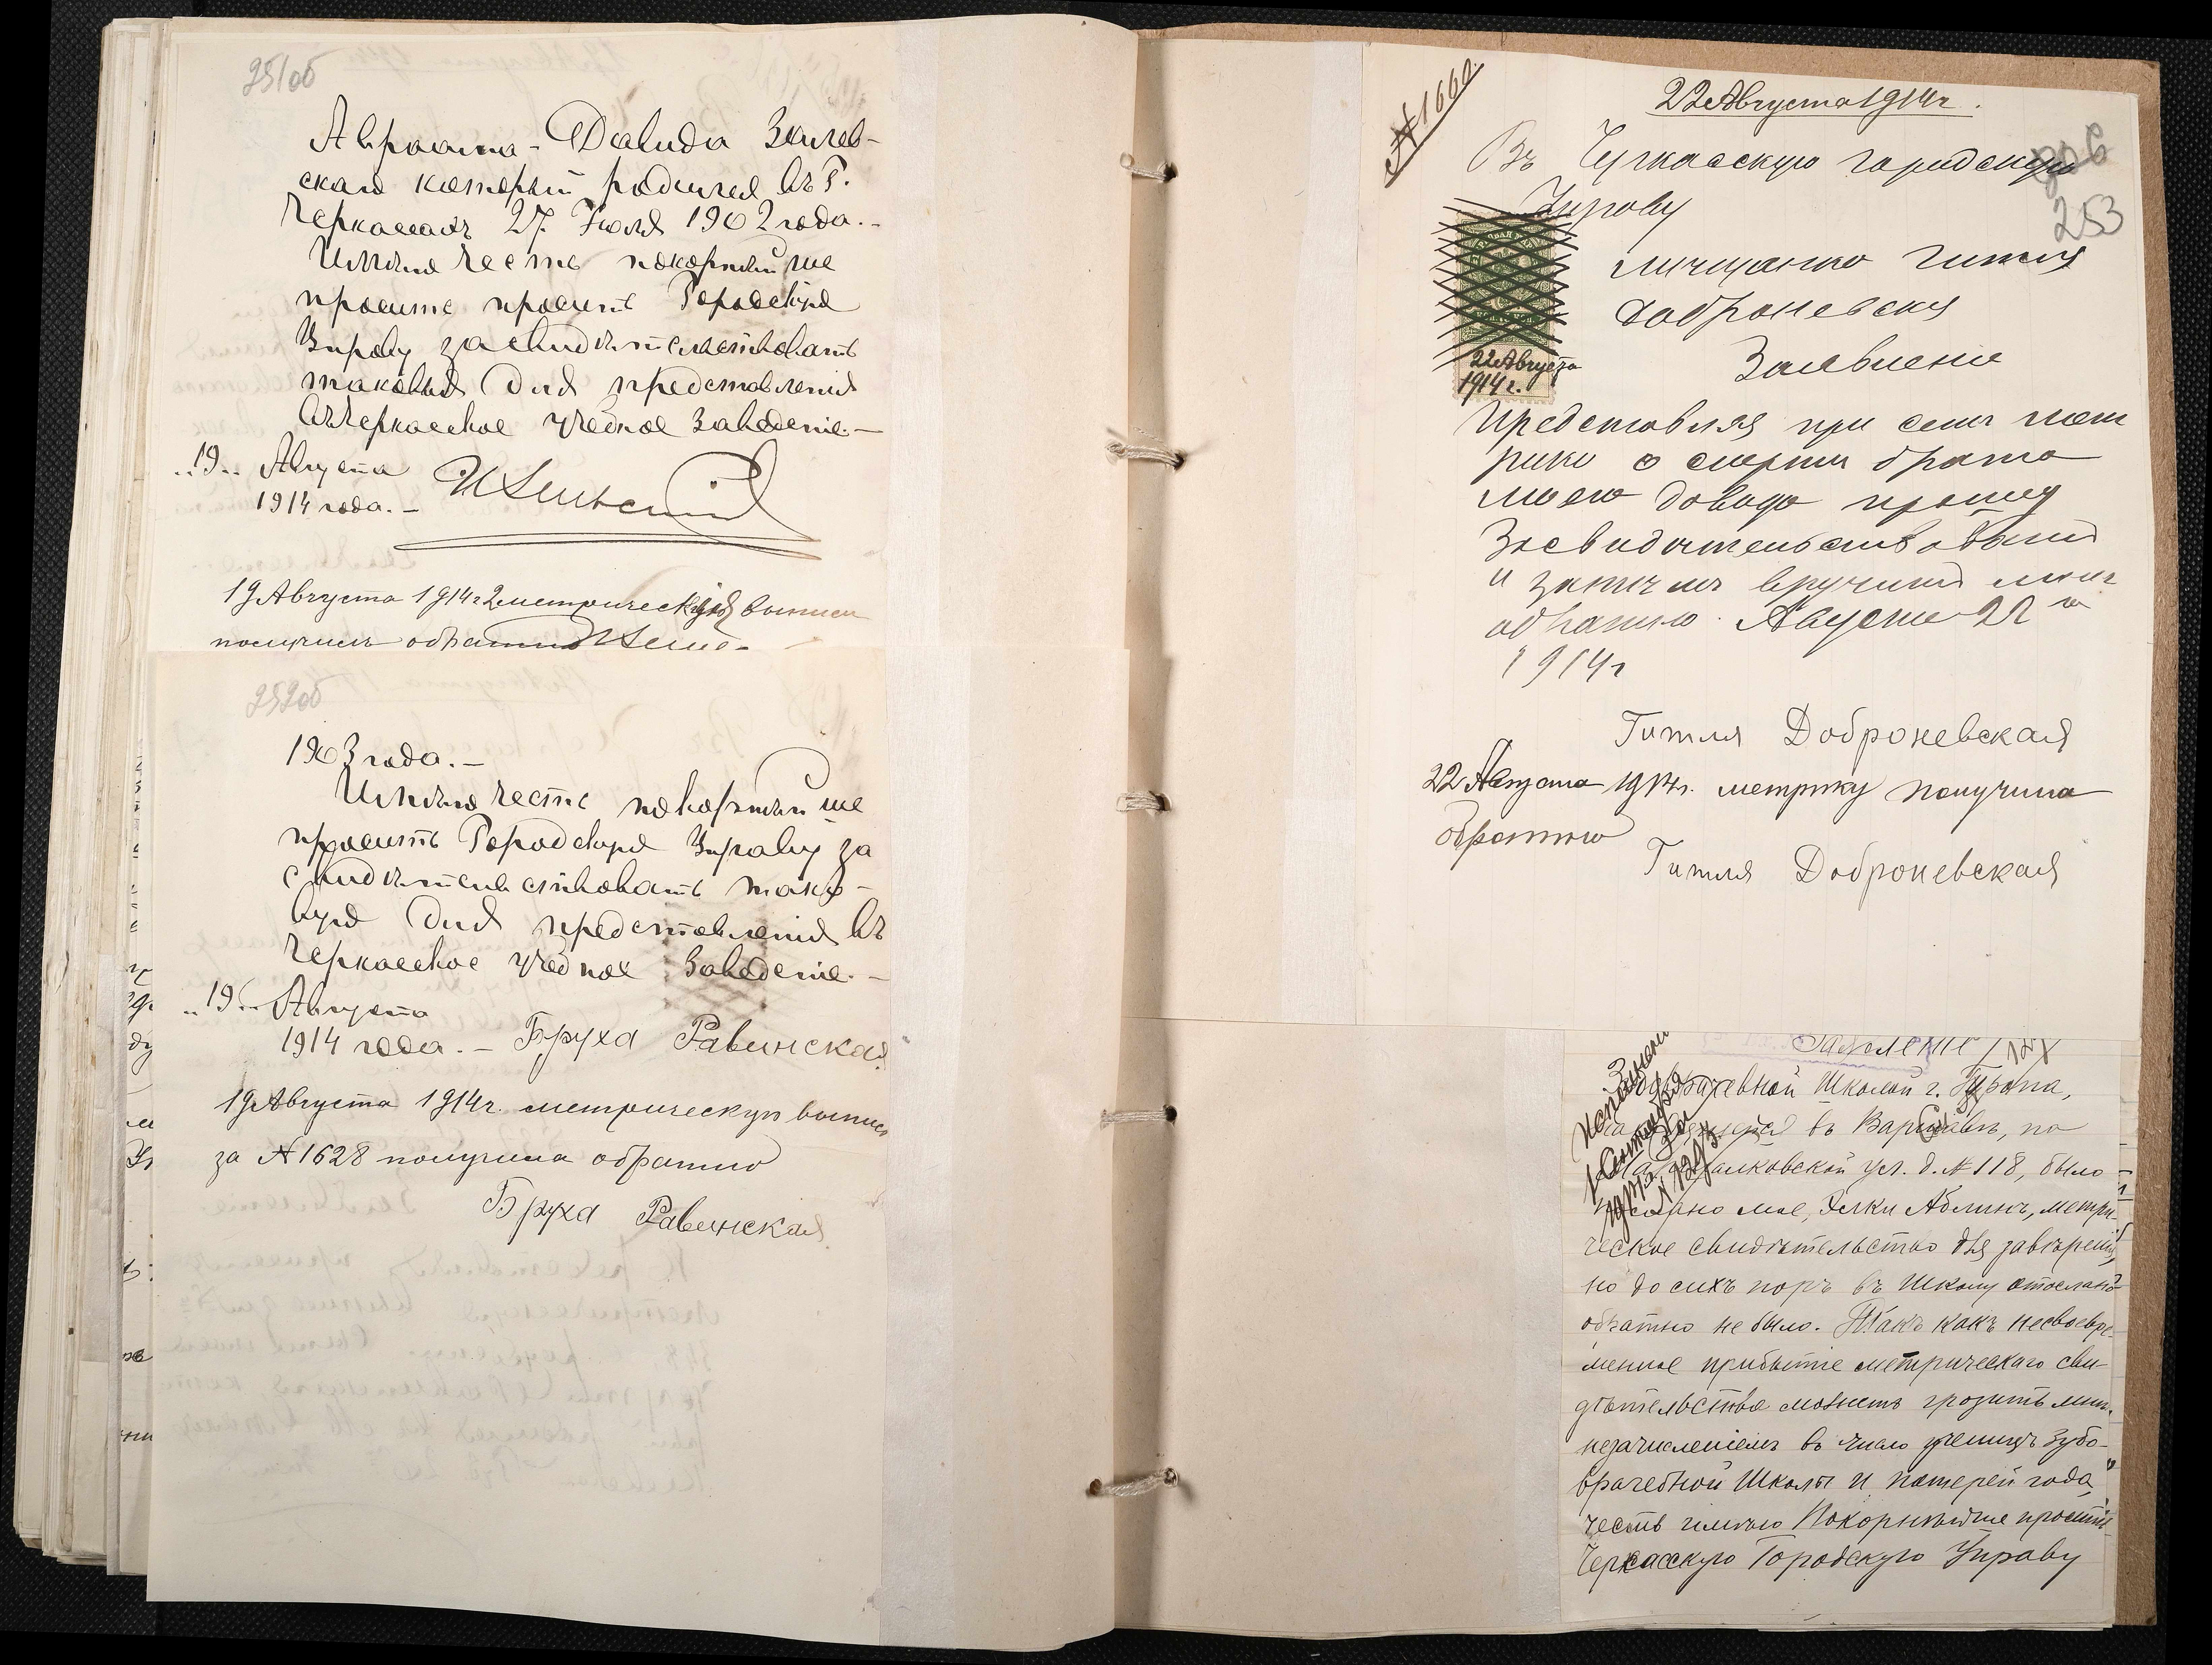 251об
Авраама-Давида Зилев-
скаго который родился въ г.
Черкассахъ 27. Іюля 1902 года.-
Имѣю честь покорнѣйше
просить просить Городскую
Управу засвидѣтельствовать
таковыя для представленія
въ Черкасское учебное Заведеніе.-
"19" Августа
1914 года.-
19 Августа 1914 г 2 метрическія выписи
получилъ обратно
252об
1903 года.-
Имѣю честь покорнѣйше
просить Городскую Управу за
свидѣтельствовать тако-
вую для представленія въ
Черкасское учебное Заведеніе.-
"19" Августа
1914 года.- Бруха Равинская
19 Августа 1914 г. метрическую выпись
за № 1628 получила обратно
Бруха Равинская
№ 1660.
22 Августа 1914 г.
253
Въ Черкасскую городскую
Управу
мищанко Гитля
Доброневская
22 Августа
1914 г.
Заявление
Представляя при семъ мет
рику о смерти брата
моего Довида прошу
Засвидительствовать
и затимъ вручить мнѣ
обратно. Августа 22 го
1914 г
Гитля Доброневская
22 Августа 1914 г. метрику получила
обратно
Гитля Доброневская
Заявленіе
Школой г. Турапа,
въ Варшавѣ, по
ул. д. № 118, было
мое, Элки Аблинъ, метри-
ческое свидѣтельство для завѣренія,
но до сихъ поръ въ Школу отослано
обратно не было. Такъ какъ несвоевре-
менное прибытіе метрическаго сви-
дѣтельства можетъ грозить мнѣ
незачисленіемъ въ число ученицъ Зубо-
врачебной Школы и потерей года,
честь имѣю Покорнѣйше просить
Черкасскую Городскую Управу